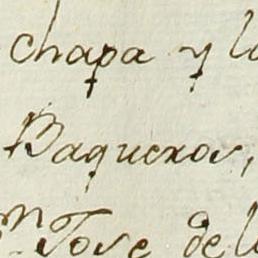 chapa y l
Baqueros,
n Jose del